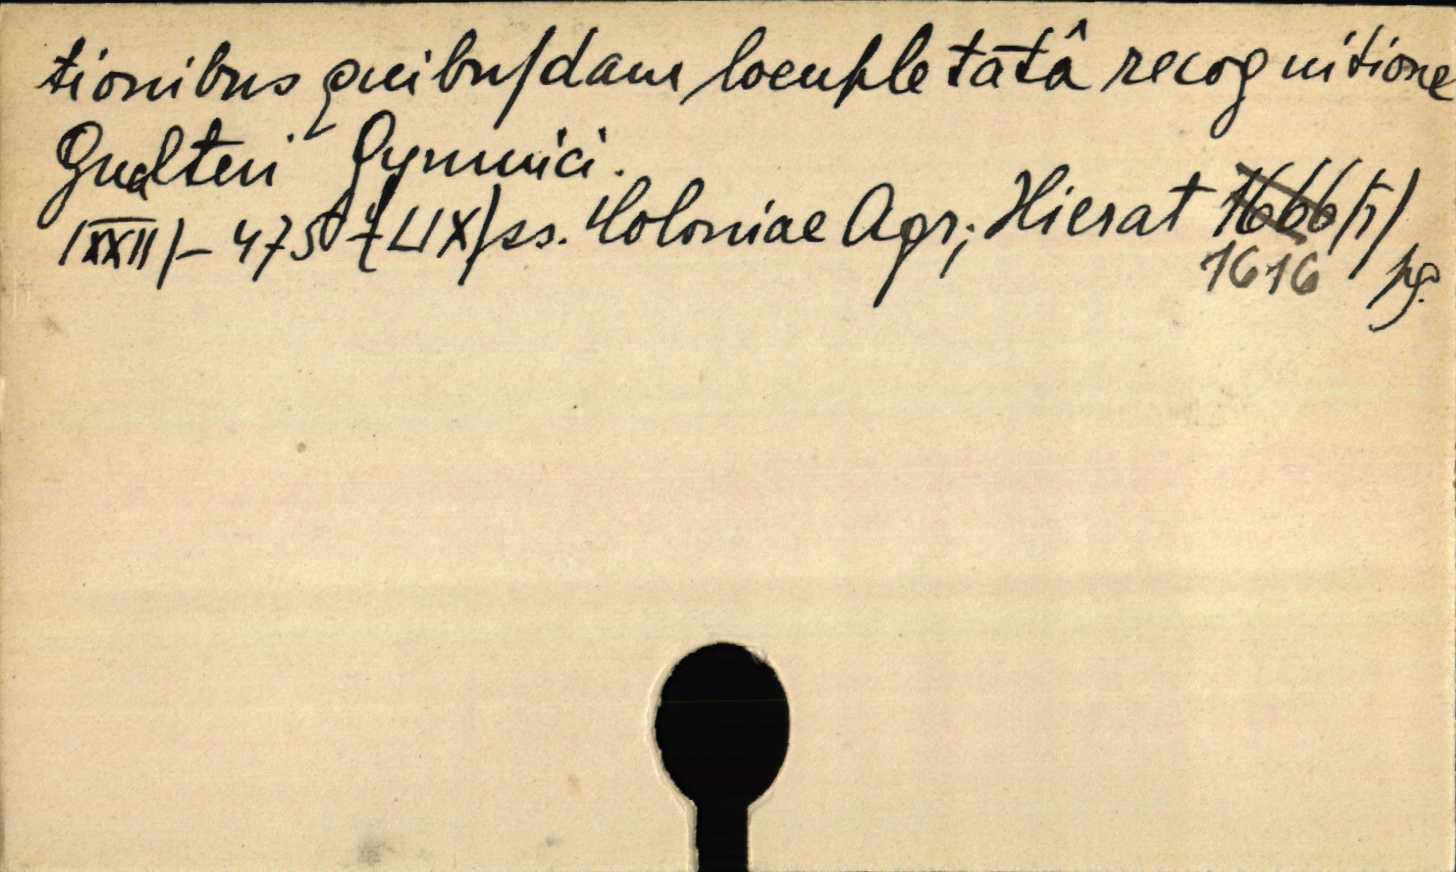 tionibus quibusdam locupletatâ recognitione
Gualteri Gymnici.
/XXII/– 475 + /LIX/ ss. Coloniae Agr; Hierat 1666 /5/
1616 pg.